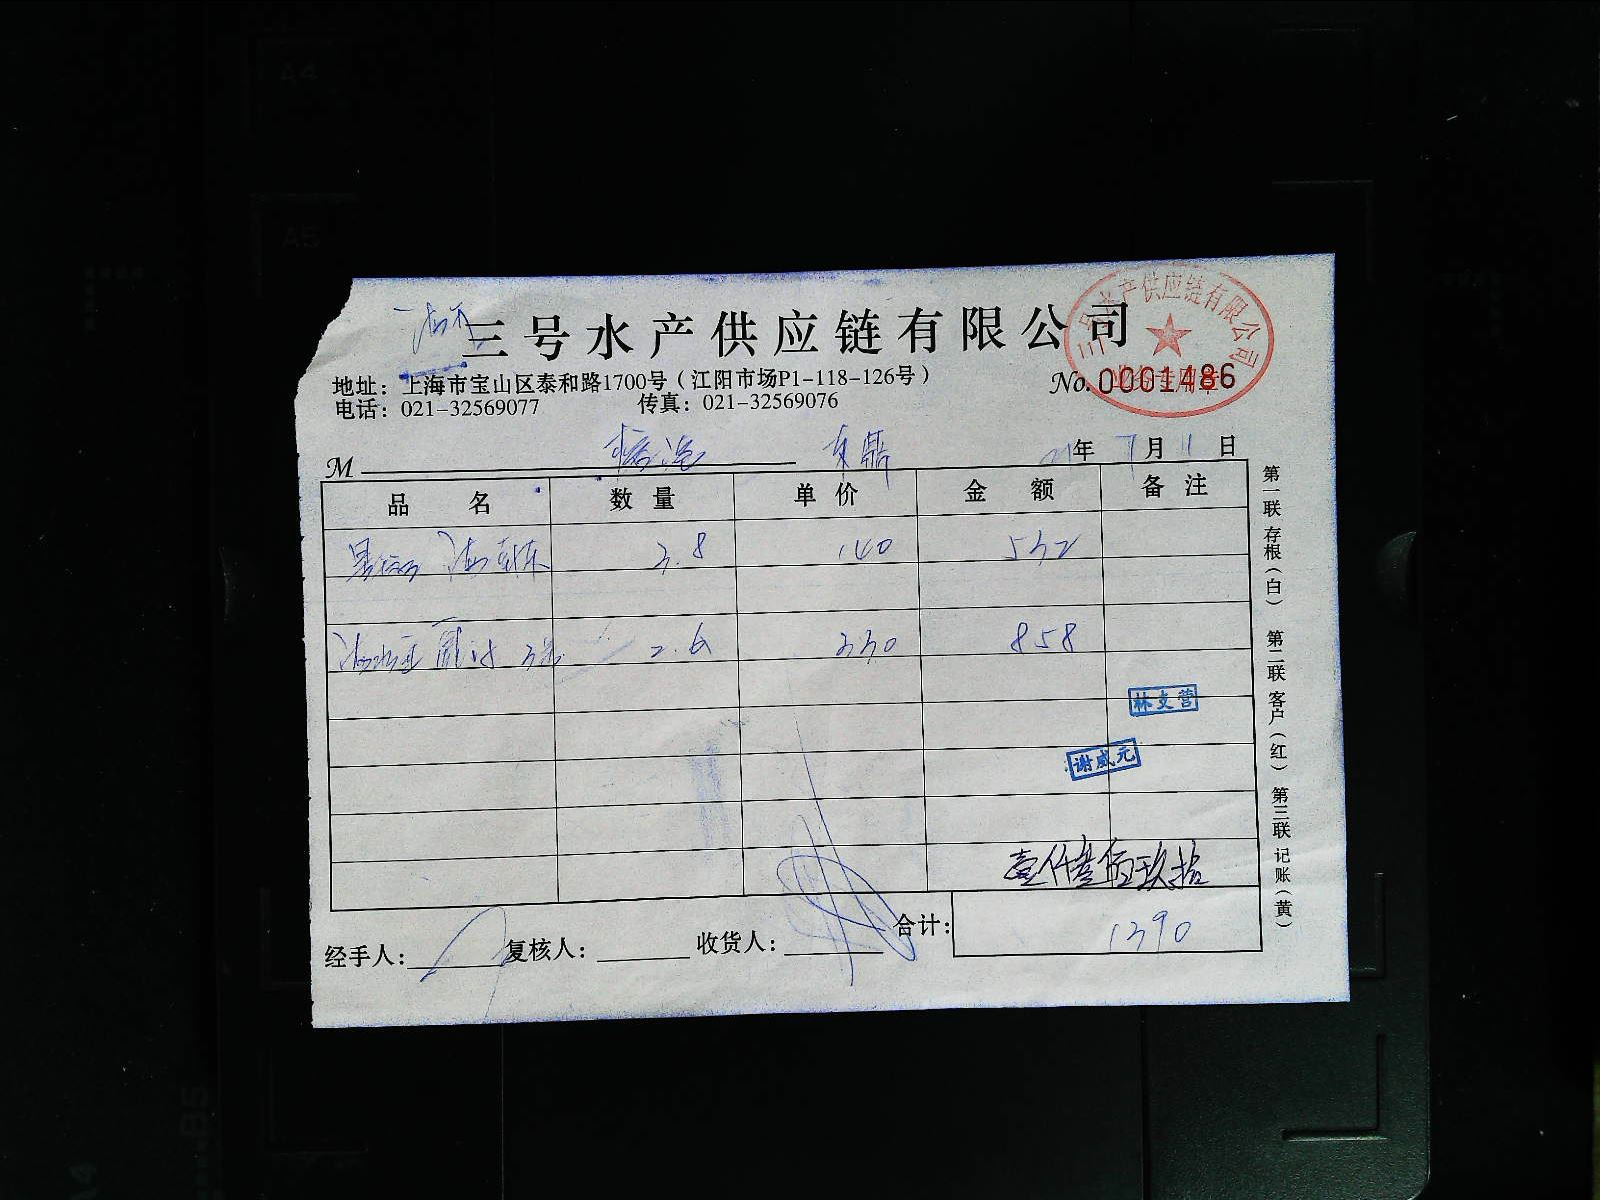 三号水产供应链有限公司
三号水产供应链有限公司
地址：上海市宝山区泰和路1700号（江阳市场P1-118-126号）
No.0001486
电话：021-32569077 传真：021-32569076
M 东鼎 21年 7月 11日
品名 数量 单价 金额 备注
3.8 140 532
2.6 330 858
林支营
谢威元
壹仟叁佰玖拾
合计：1390
经手人： 复核人： 收货人：
第一联 存根（白） 第二联 客户（红） 第三联 记账（黄）
A4
A5
B5
A4